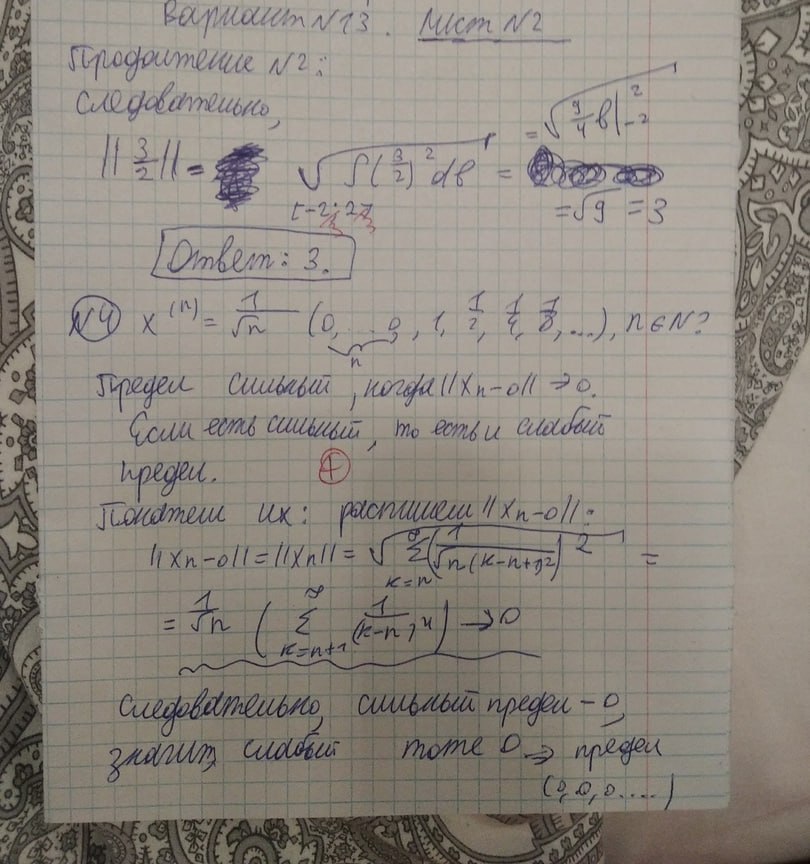 Вариант N13. Лист N2
Продолжение N2:
Следовательно,
||3/2|| = √∫(3/2)² dв = √9/4 в|²₋₂
[-2; 2] = √9 = 3
Ответ: 3.
N4 x⁽ⁿ⁾ = 1/√n (0, ... 0, , 1, 1/2, 1/4, 1/8, ...), n ∈ N?
n
Предел сильный, когда ||xn-0|| → 0.
Если есть сильный, то есть и слабый
предел. +
Покажем их: распишем ||xn-0||:
||xn-0|| = ||xn|| = √∑(1/√n(k-n+1)²)² =
k=n
= 1/√n (∑ 1/(k-n)⁴) → 0
k=n+1
Следовательно, сильный предел - 0,
значит, слабый тоже 0 ⇒ предел
(0, 0, 0.....)